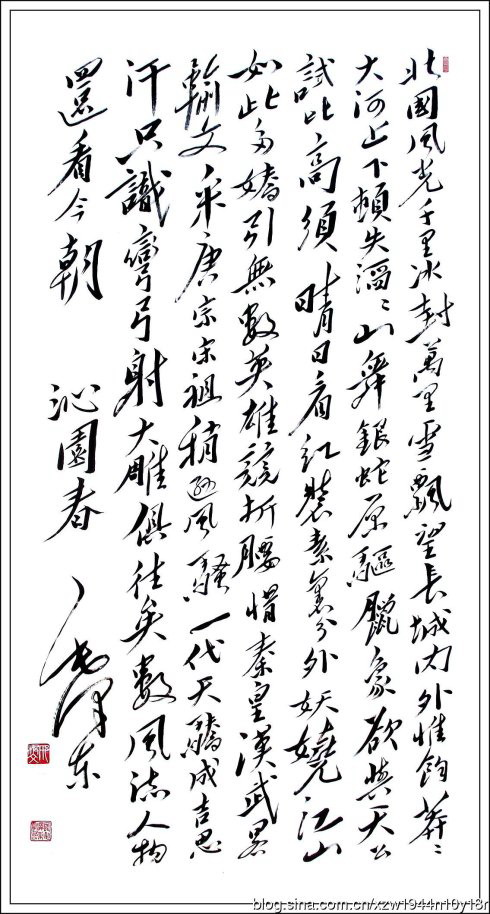 北國风光千里冰封萬里雪飄望長城内外惟餘莽〻
大河上下頓失滔〻山舞銀蛇原驅臘象欲與天公
試比高須晴日看红裝素裹分外妖嬈江山
如此多嬌引無數英雄競折腰惜秦皇漢武畧
輸文采唐宗宋祖稍遜风騷一代天驕成吉思
汗只識彎弓射大雕俱往矣數风流人物
還看今朝 沁園春 毛泽东
blog.sina.com.cn/xzw1944n10y18r